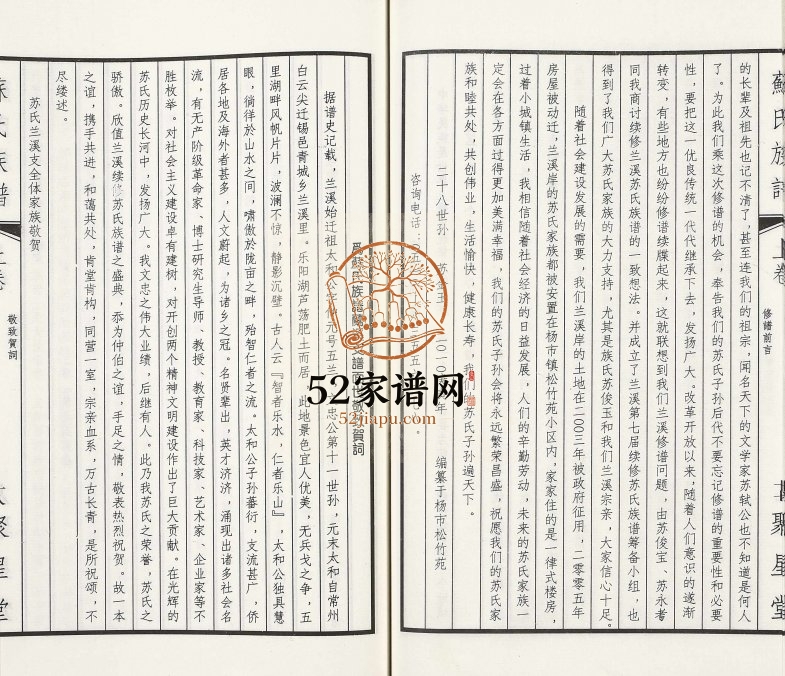 蘇氏族譜
上卷
修譜前言
聚星堂
的长辈及祖先也记不清了，甚至连我们的祖宗，闻名天下的文学家苏轼公也不知道是何人
了。为此我们乘这次修谱的机会，奉告我们的苏氏子孙后代不要忘记修谱的重要性和必要
性，要把这一优良传统一代代继承下去，发扬广大。改革开放以来，随着人们意识的遂渐
转变，有些地方也纷纷修谱续牒起来，这就联想到我们兰溪修谱问题，由苏俊宝、苏永考
同我商讨续修兰溪苏氏族谱的一致想法。并成立了兰溪第七届续修苏氏族谱筹备小组，也
得到了我们广大苏氏家族的大力支持，尤其是族氏苏俊玉和我们兰溪宗亲，大家信心十足。
随着社会建设发展的需要，我们兰溪岸的土地在二00三年被政府征用，二零零五年
房屋被动迁，兰溪岸的苏氏家族都被安置在杨市镇松竹苑小区内，家家住的是一律式楼房，
过着小城镇生活，我相信随着社会经济的日益发展，人们的辛勤劳动，未来的苏氏家族一
定会在各方面过得更加美满幸福，我们的苏氏子孙会将永远繁荣昌盛，祝愿我们的苏氏家
族和睦共处，共创伟业，生活愉快，健康长寿，我们的苏氏子孙遍天下。
二十八世孙 苏 玉 二0一0 年 编纂于杨市松竹苑
咨询电话：0五
爲蘇氏族譜蘭 支譜 敬致賀詞
据谱史记载，兰溪始迁祖太和公字仲元号五兰 忠公第十一世孙，元末太和自常州
白云尖迁锡邑青城乡兰溪里。乐阳湖芦荡肥土而居，此地景色宜人优美，无兵戈之争，五
里湖畔风帆片片，波澜不惊，静影沉壁。古人云『智者乐水，仁者乐山』，太和公独具慧
眼，徜徉於山水之间，啸傲於陇亩之畔，殆智仁者之流。太和公子孙蕃衍，支流甚广，侨
居各地及海外者甚多，人文蔚起，为诸乡之冠。名贤辈出，英才济济，涌现出诸多社会名
流，有无产阶级革命家、博士研究生导师、教授、教育家、科技家、艺术家、企业家等不
胜枚举。对社会主义建设卓有建树，对开创两个精神文明建设作出了巨大贡献。在光辉的
苏氏历史长河中，发扬广大。我文忠之伟大业绩，后继有人。此乃我苏氏之荣誉，苏氏之
骄傲。欣值兰溪续修苏氏族谱之盛典，忝为仲伯之谊，手足之情，敬表热烈祝贺。故一本
之谊，携手共进，和蔼共处，肯堂肯构，同营一室，宗亲血系，万古长青，是所祝颂，不
尽缕述。
苏氏兰溪支全体家族敬贺
敬致賀詞
52家谱网
52jiapu.com